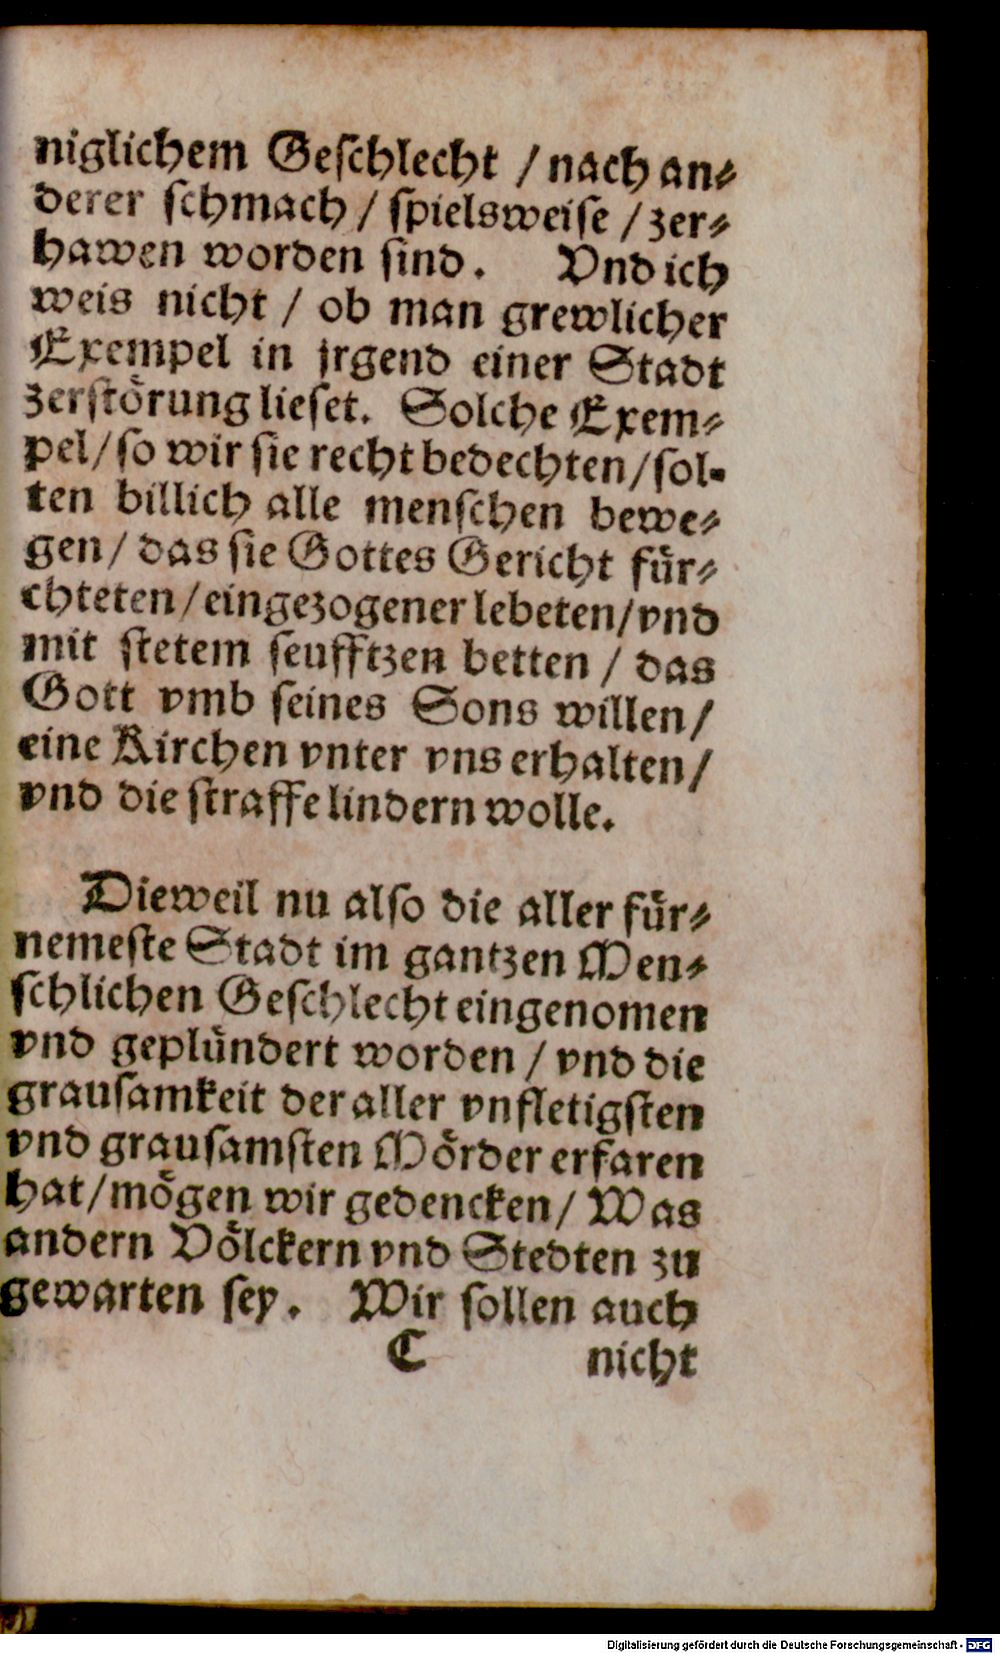 niglichem Geſchlecht / nach an⸗
derer ſchmach / ſpielsweiſe / zer⸗
hawen worden ſind. Vnd ich
weis nicht / ob man grewlicher
Exempel in jrgend einer Stadt
zerſtoͤrung lieſet. Solche Exem⸗
pel / ſo wir ſie recht bedechten / ſol⸗
ten billich alle menſchen bewe⸗
gen / das ſie Gottes Gericht fuͤr⸗
chteten / eingezogener lebeten / vnd
mit ſtetem ſeufftzen betten / das
Gott vmb ſeines Sons willen /
eine Kirchen vnter vns erhalten /
vnd die ſtraffe lindern wolle.
Dieweil nu alſo die aller fuͤr⸗
nemeſte Stadt im gantzen Men⸗
ſchlichen Geſchlecht eingenomen
vnd gepluͤndert worden / vnd die
grauſamkeit der aller vnfletigſten
vnd grauſamſten Moͤrder erfaren
hat / moͤgen wir gedencken / Was
andern Voͤlckern vnd Stedten zu
gewarten ſey. Wir ſollen auch
C nicht
Digitalisierung gefördert durch die Deutsche Forschungsgemeinschaft - DFG